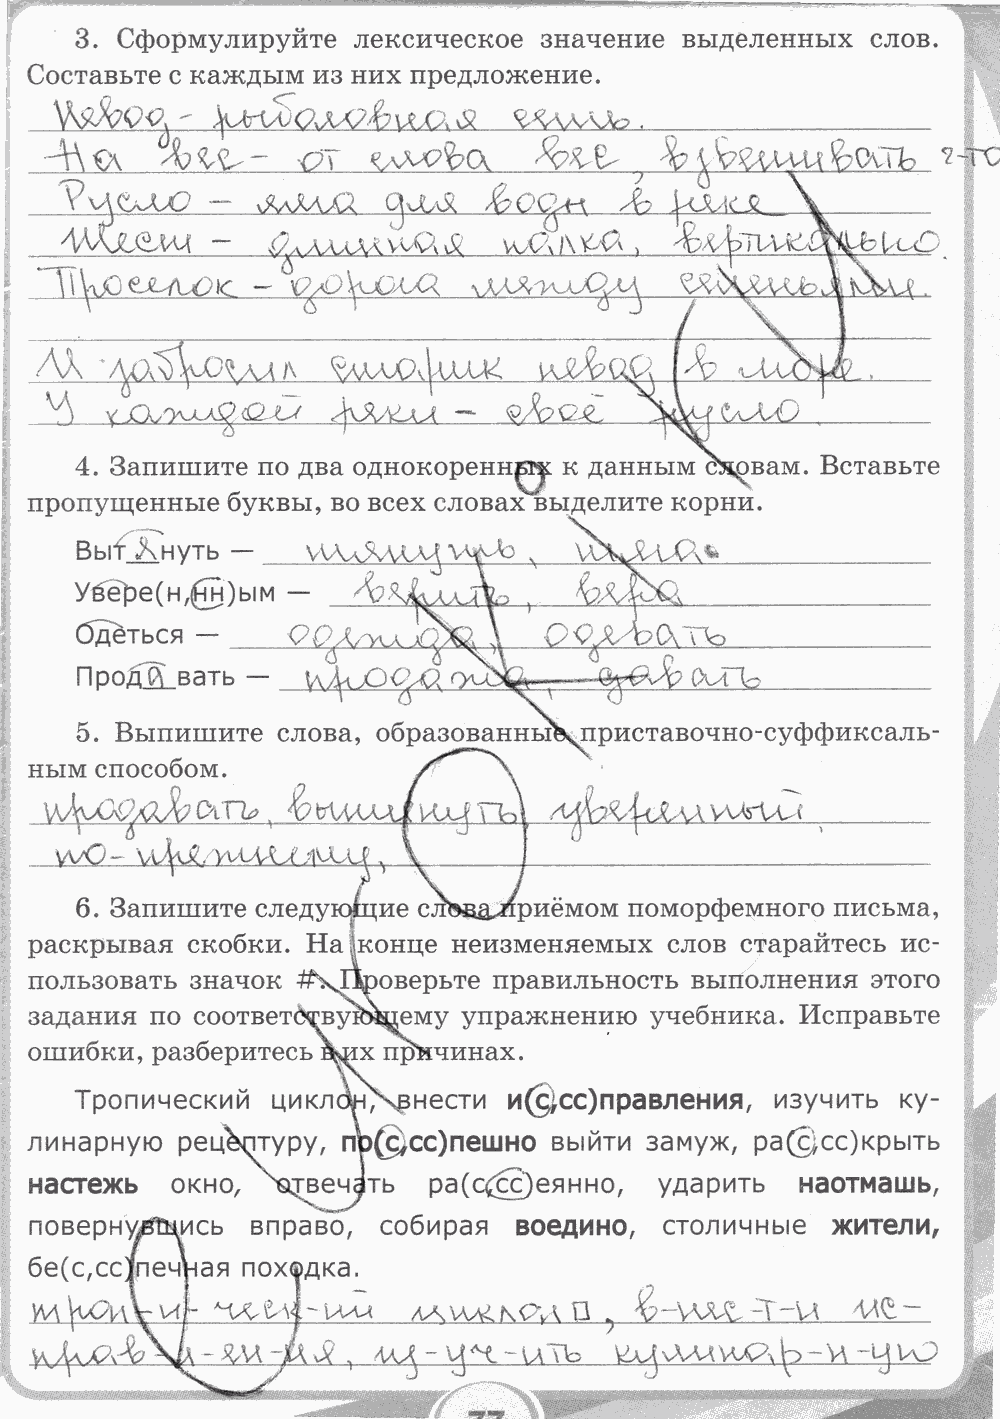 3. Сформулируйте лексическое значение выделенных слов.
Составьте с каждым из них предложение.
Невод - рыболовная сеть.
На вес - от слова вес, взвешивать ч-то
Русло - яма для воды в реке
Шест - длинная палка, вертикально.
Проселок - дорога между селеньями.
И забросил старик невод в море.
У каждой реки - своё русло.
4. Запишите по два однокоренных к данным словам. Вставьте
пропущенные буквы, во всех словах выделите корни.
Вытянуть — тянуть, тяга.
Увере(н,нн)ым — верить, вера
Одеться — одежда, одевать
Продавать — продажа, давать
5. Выпишите слова, образованные приставочно-суффиксаль-
ным способом.
продавать, вытянуть, уверенный,
по-прежнему,
6. Запишите следующие слова приёмом поморфемного письма,
раскрывая скобки. На конце неизменяемых слов старайтесь ис-
пользовать значок #. Проверьте правильность выполнения этого
задания по соответствующему упражнению учебника. Исправьте
ошибки, разберитесь в их причинах.
Тропический циклон, внести и(с,сс)правления, изучить ку-
линарную рецептуру, по(с,сс)пешно выйти замуж, ра(с,сс)крыть
настежь окно, отвечать ра(с,сс)еянно, ударить наотмашь,
повернувшись вправо, собирая воедино, столичные жители,
бе(с,сс)печная походка.
троп-и-ческ-ий циклон□, в-нес-т-и ис-
прав-л-ен-ия, из-уч-ить кулинар-н-ую
77